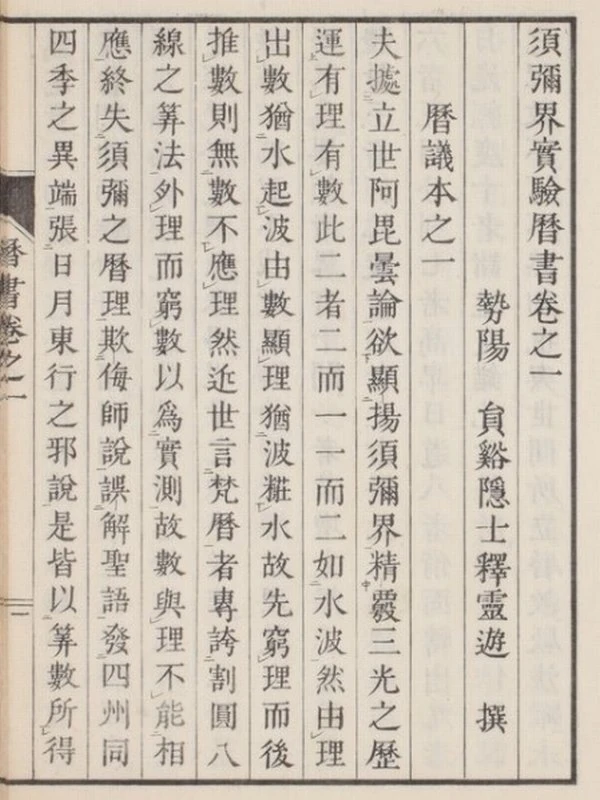 須彌界實驗暦書卷之一
勢陽 貟谿隱士釋靈遊 撰
暦議本之一
夫據立世阿毘曇論欲顯揚須彌界精覈三光之歴
運有理有數此二者二而一一而二如水波然由理
出數猶水起波由數顯理猶波粧水故先窮理而後
推數則無數不應理然近世言梵暦者專誇割圓八
線之筭法外理而窮數以爲實測故數與理不能相
應終失須彌之暦理欺侮師說誤解聖語發四州同
四季之異端張日月東行之邪說是皆以筭數所得
暦書卷之一
一